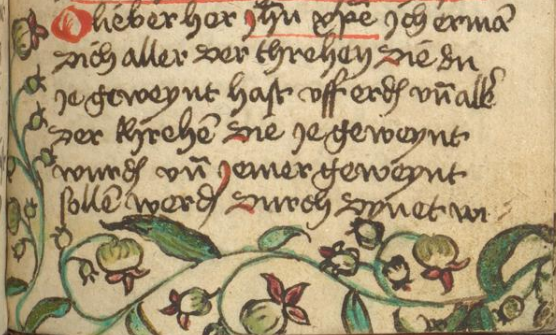 O lieber her jhu xpe jch erma
dich aller der threhen die du
je geweynt hast vff erd vn alle
der threhe die je geweynt
wurd vn jemer geweynt
solle werd durch dynet wi